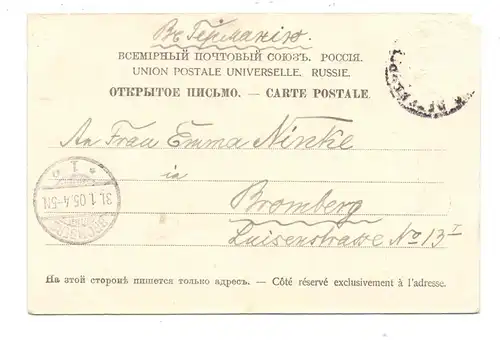 Въ Германію.
ВСЕМІРНЫЙ ПОЧТОВЫЙ СОЮЗЪ. РОССІЯ.
UNION POSTALE UNIVERSELLE. RUSSIE.
ОТКРЫТОЕ ПИСЬМО. — CARTE POSTALE.
An Frau Emma Ninke
in
Bromberg
Luisenstrasse No 13 I
* 1 b
31.1.05.4-5N
BROMBERG
На этой сторонѣ пишется только адресъ. — Côté réservé exclusivement à l'adresse.